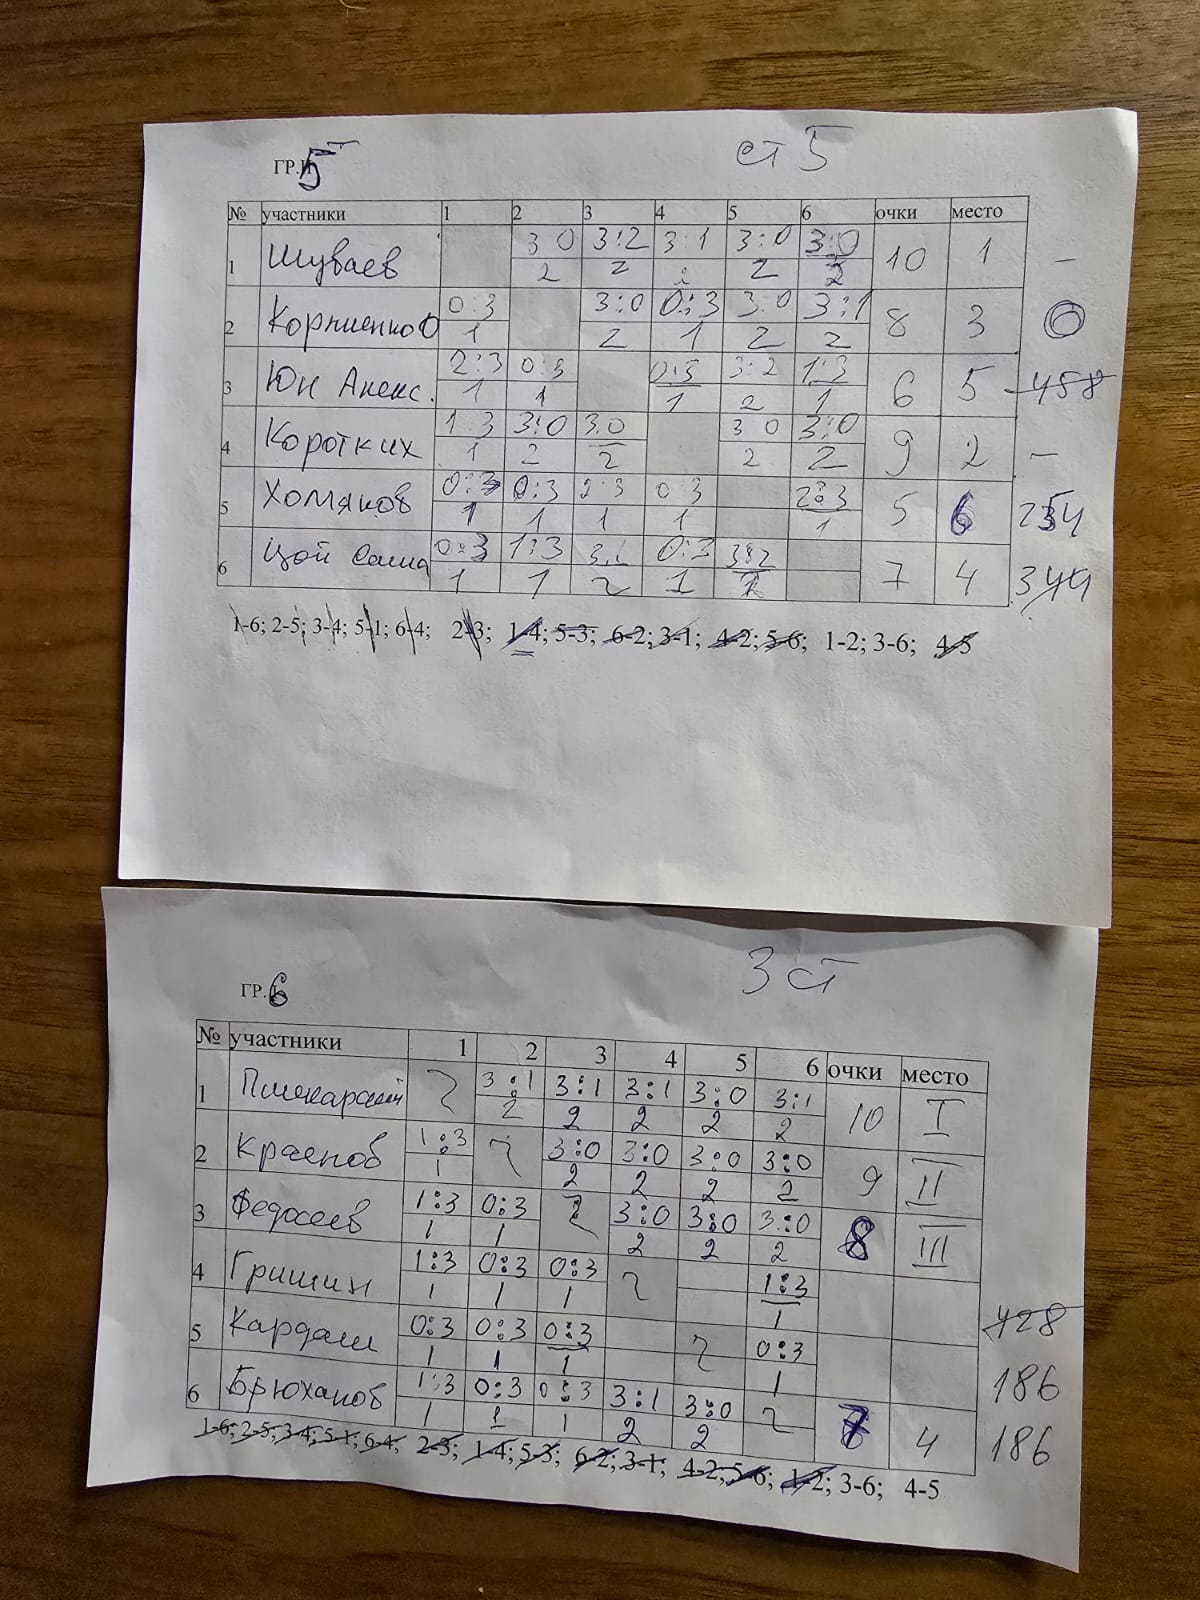 ГР. 5 ст 5
№ участники 1 2 3 4 5 6 очки место
1 Шуваев 3 0 3:2 3:1 3:0 3:0 10 1 –
2 2 2 2 2
2 Корниенко 0:3 3:0 0:3 3:0 3:1 8 3 0
1 2 1 2 2
3 Юн Алекс. 2:3 0:3 0:3 3:2 1:3 6 5 458
1 1 1 2 1
4 Коротких 1 3 3:0 3:0 3 0 3:0 9 2 –
1 2 2 2 2
5 Хомяков 0:3 0:3 2:3 0:3 2:3 5 6
1 1 1 1 1
6 Цой Саша 0:3 1:3 3:1 0:3 3:2 7 4
1 1 2 1 2
1-6; 2-5; 3-4; 5-1; 6-4; 2-3; 1-4; 5-3; 6-2; 3-1; 4-2; 5-6; 1-2; 3-6; 4-5
ГР. 6 3 ст
№ участники 1 2 3 4 5 6 очки место
1 3:1 3:1 3:1 3:0 3:1 10 I
2 2 2 2 2
2 Краснов 1:3 3:0 3:0 3:0 3:0 9 II
1 2 2 2 2
3 Федосеев 1:3 0:3 3:0 3:0 3:0 8 III
1 1 2 2 2
4 Гришин 1:3 0:3 0:3 1:3
1 1 1 1 428
5 Кардаш 0:3 0:3 0:3 0:3
1 1 1 1 186
6 Брюханов 1:3 0:3 0:3 3:1 3:0 7 4 186
1 1 1 2 2
1-6; 2-5; 3-4; 5-1; 6-4; 2-3; 1-4; 5-3; 6-2; 3-1; 4-2; 5-6; 1-2; 3-6; 4-5